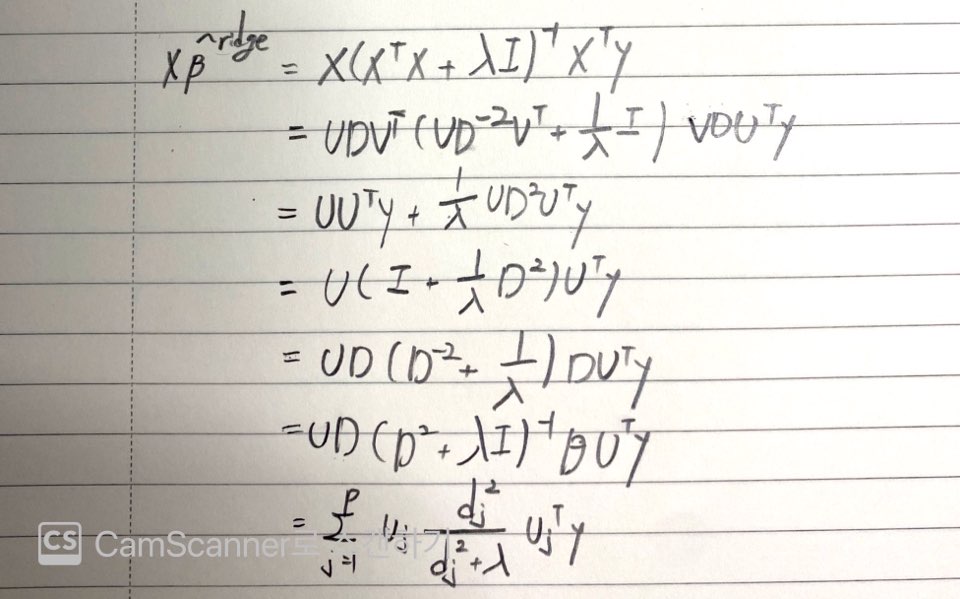 Xβ^ridge = X(XᵀX + λI)⁻¹ Xᵀy
= UDVᵀ (VD⁻²Vᵀ + 1/λ I) VDUᵀy
= UUᵀy + 1/λ UD²Uᵀy
= U( I + 1/λ D²)Uᵀy
= UD (D⁻² + 1/λ) DUᵀy
= UD (D² + λI)⁻¹ DUᵀy
= Σ_{j=1}^{p} uj dj²/(dj²+λ) ujᵀy
CS CamScanner로 스캔하기